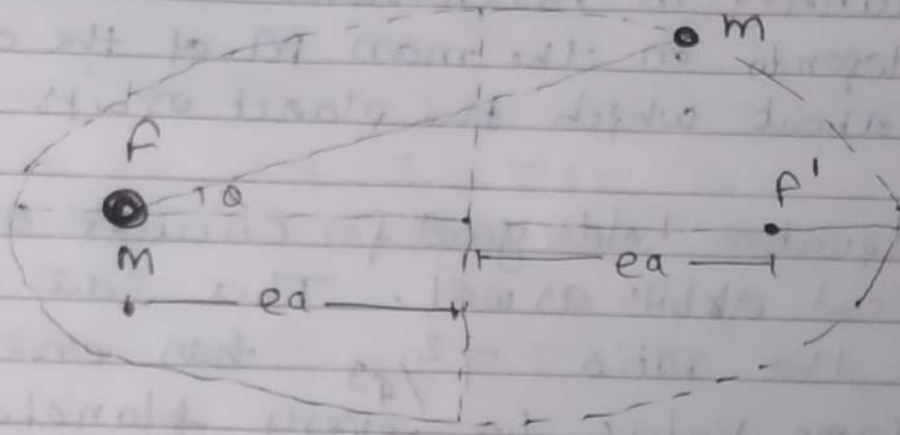 m
F
θ
F'
M
ea
ea